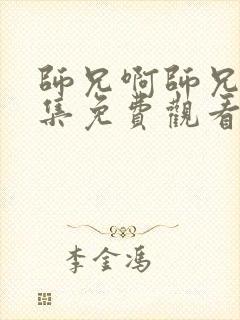 師兄啊師兄
集免費觀看
李金馮